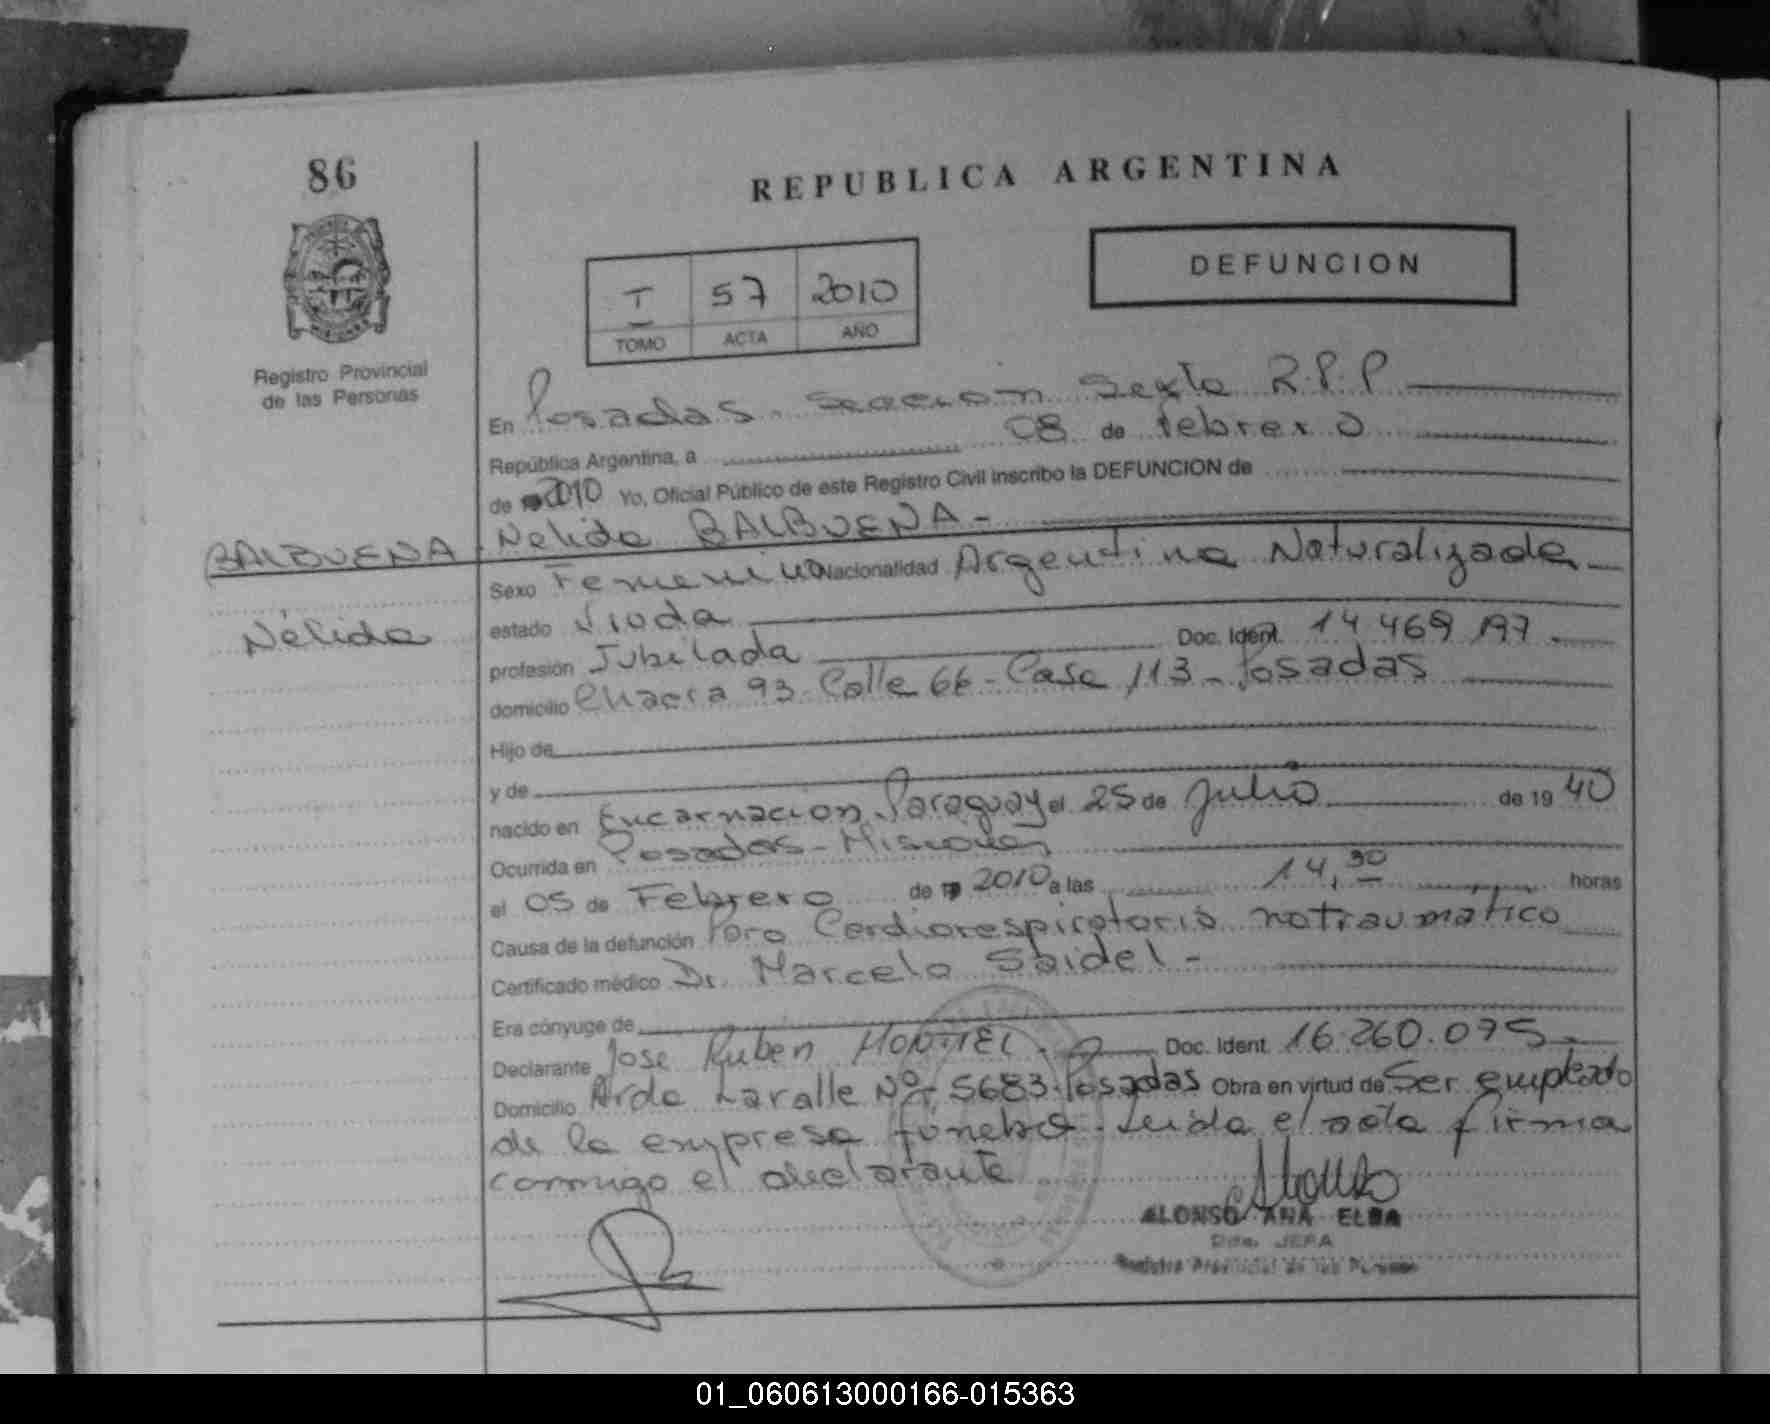 86
REPUBLICA ARGENTINA
DEFUNCION
I 57 2010
TOMO ACTA AÑO
Registro Provincial
de las Personas
En Posadas. Sección Sexta R.P.P
República Argentina, a 08 de febrero
de 2010 Yo, Oficial Público de este Registro Civil inscribo la DEFUNCION de
Nelida BALBUENA -
BALBUENA
Nélida
Sexo Femenino Nacionalidad Argentina Naturalizada
estado Viuda
profesión Jubilada Doc. Ident. 14 469 197
domicilio Chacra 93 - Calle 66 - Casa 113 - Posadas
Hijo de
y de
nacido en Encarnacion - Paraguay el 25 de Julio de 19 40
Ocurrida en Posadas - Misiones
el 05 de Febrero de 2010 a las 14,30 horas
Causa de la defunción Paro Cardiorespiratorio no traumatico
Certificado médico Dr. Marcelo Seidel -
Era cónyuge de
Declarante Jose Ruben MONTIEL - Doc. Ident. 16.260.075 -
Domicilio Avda Lavalle Nº 5683 - Posadas Obra en virtud de Ser empleado
de la empresa funebre - Leida el acta firma
conmigo el declarante
ALONSO ANA ELBA
JEFA
Registro Provincial de las Personas
01_060613000166-015363